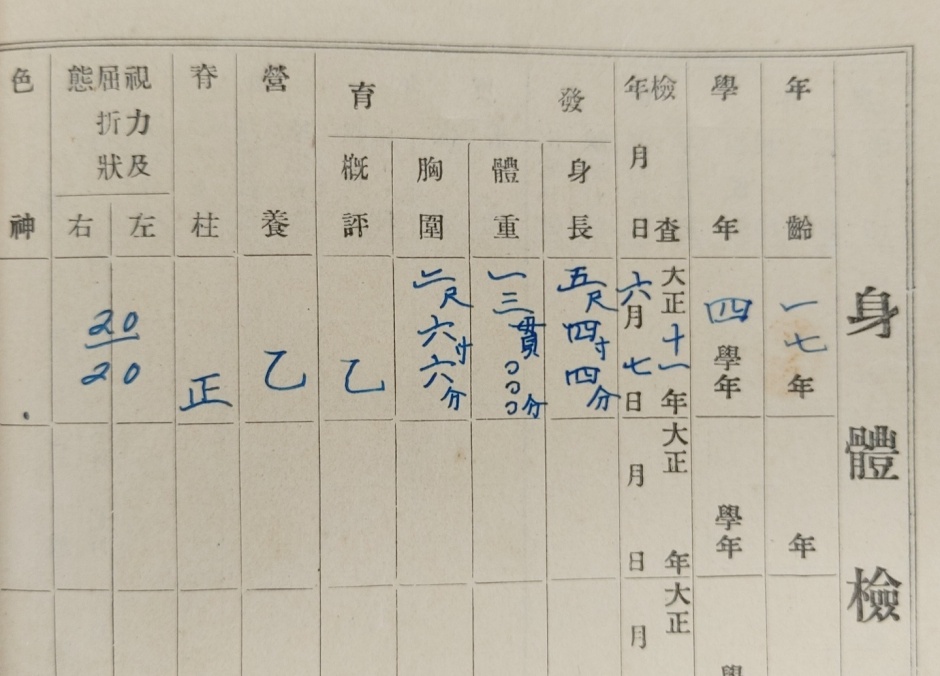 身體檢
年齡
學年
檢査年月日
發育
身長
體重
胸圍
概評
營養
脊柱
視力及屈折狀態
左
右
色神
一七年
四學年
大正十一年
六月七日
五尺四寸四分
一三貫〇〇〇分
二尺六寸六分
乙
乙
正
20
20
20
20
年
學年
大正 年
月 日
大正
月
學